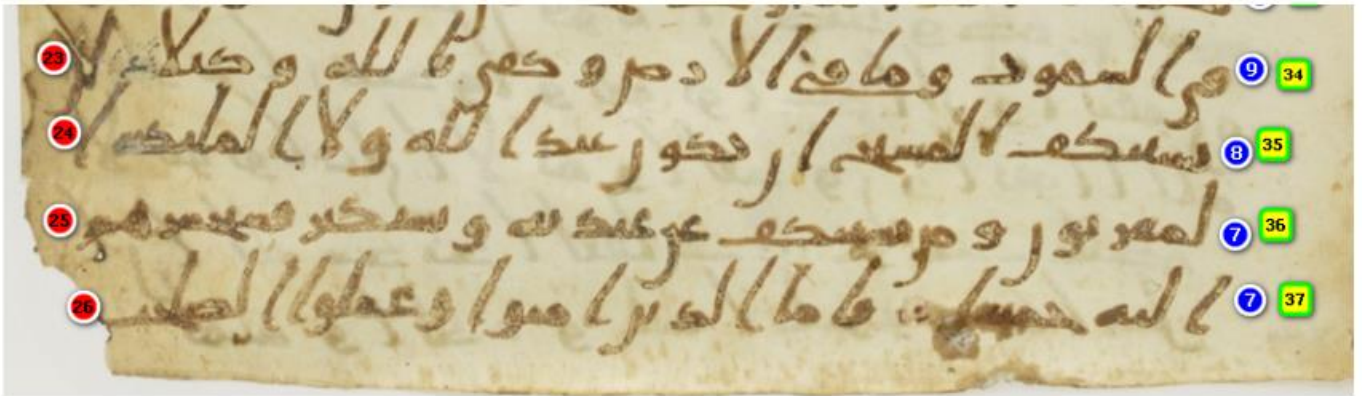 34 9 في السموت وما في الارض وكفى بالله وكيلا 23
35 8 يستنكف المسيح ان يكون عبدا لله ولا الملئكة ا 24
36 7 لمقربون ومن يستنكف عن عبدته ويستكبر فسيحشرهم 25
37 7 اليه جميعا فاما الذين امنوا وعملوا الصلحت 26